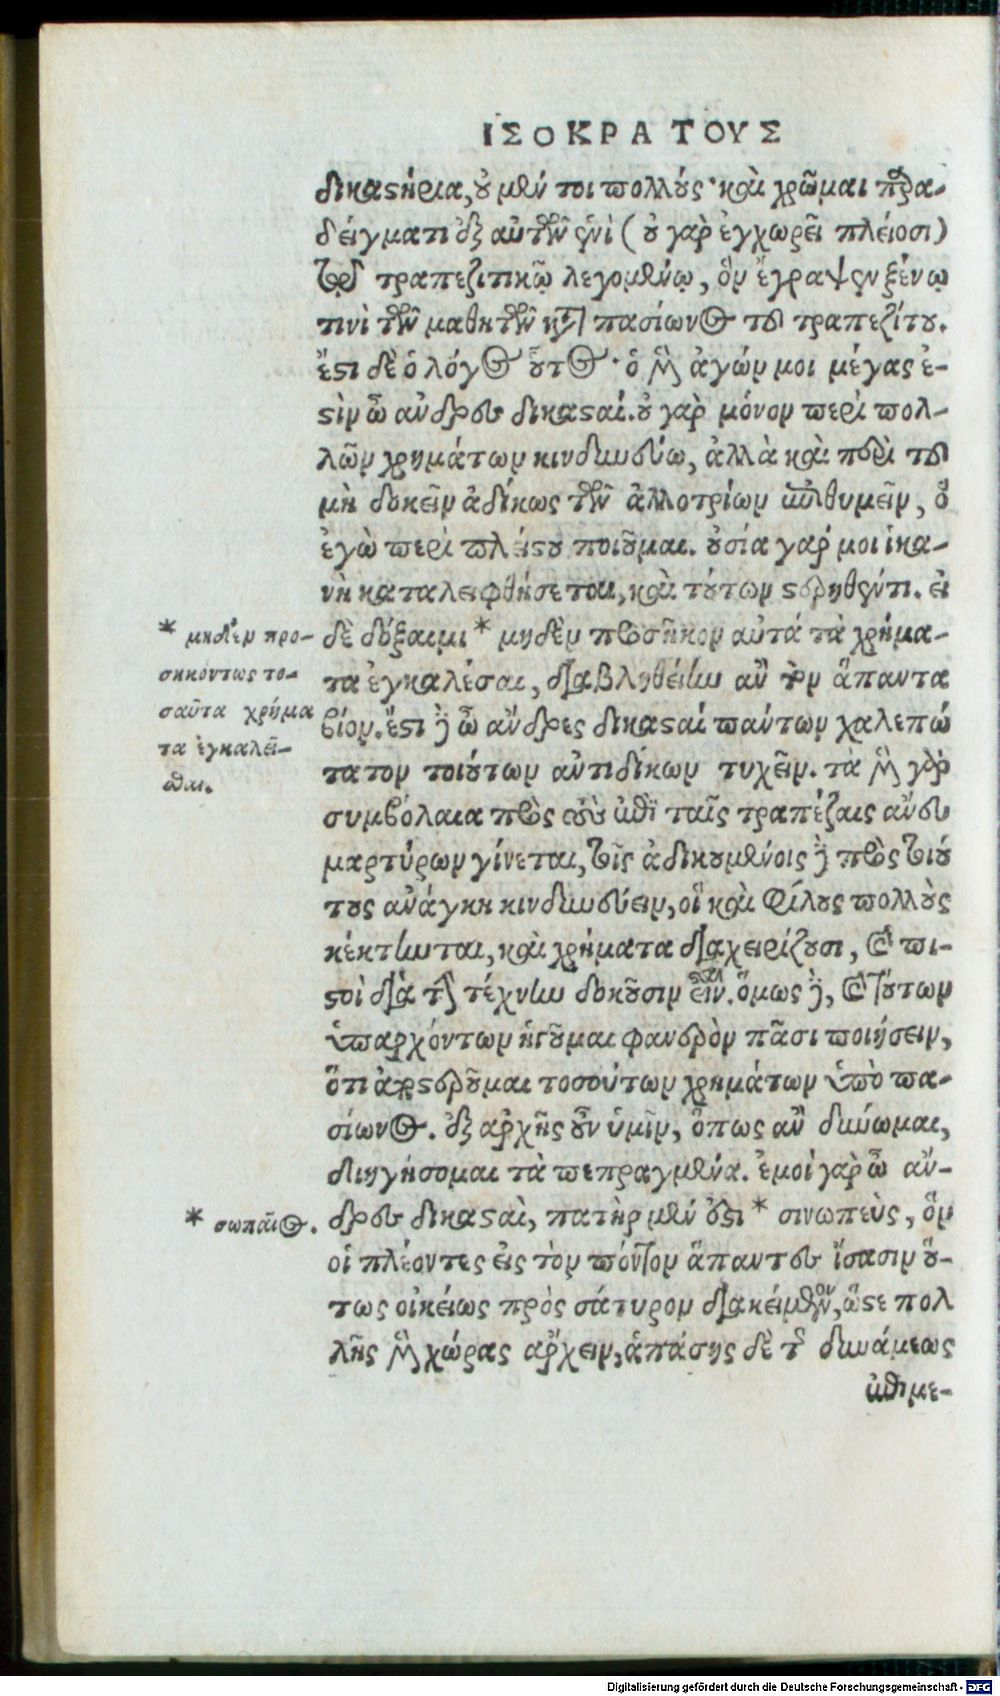 ΙΣΟΚΡΑΤΟΥΣ
δικαστήρια, οὐ μέν τοι πολλούς· καὶ χρῶμαι παρα-
δείγματι ἐξ αὐτῶν ἑνὶ (οὐ γὰρ ἐγχωρεῖ πλείοσι)
τῷ τραπεζιτικῷ λεγομένῳ, ὃν ἔγραψεν ξένῳ
τινὶ τῶν μαθητῶν κατὰ πασίωνος τοῦ τραπεζίτου.
ἔστι δὲ ὁ λόγος οὗτος· ὁ μὲν ἀγών μοι μέγας ἐ-
στὶν ὦ ἄνδρες δικασταί. οὐ γὰρ μόνον περὶ πολ-
λῶν χρημάτων κινδυνεύω, ἀλλὰ καὶ περὶ τοῦ
μὴ δοκεῖν ἀδίκως τῶν ἀλλοτρίων ἐπιθυμεῖν, ὃ
ἐγὼ περὶ πλείστου ποιοῦμαι. οὐσία γάρ μοι ἱκα-
νὴ καταλειφθήσεται, καὶ τούτων στερηθέντι. εἰ
* μηδὲν προ-
σηκόντως το-
σαῦτα χρήμα
τα ἐγκαλεῖ-
σθαι.
δὲ δόξαιμι * μηδὲν προσῆκον αὐτά τὰ χρήμα-
τα ἐγκαλέσαι, διαβληθείην ἂν τὸν ἅπαντα
βίον. ἔστι δὲ ὦ ἄνδρες δικασταί πάντων χαλεπώ
τατον τοιούτων ἀντιδίκων τυχεῖν. τὰ μὲν γὰρ
συμβόλαια πρὸς τοὺς ἐπὶ ταῖς τραπέζαις ἄνευ
μαρτύρων γίνεται, τοῖς ἀδικουμένοις δὲ πρὸς τοιού
τους ἀνάγκη κινδυνεύειν, οἳ καὶ φίλους πολλοὺς
κέκτηνται, καὶ χρήματα διαχειρίζουσι, καὶ πι-
στοὶ διὰ τὴν τέχνην δοκοῦσιν εἶναι. ὅμως δὲ, καὶ τούτων
ὑπαρχόντων ἡγοῦμαι φανερὸν πᾶσι ποιήσειν,
ὅτι ἀποστεροῦμαι τοσούτων χρημάτων ὑπὸ πα-
σίωνος. ἐξ ἀρχῆς οὖν ὑμῖν, ὅπως ἂν δύνωμαι,
διηγήσομαι τὰ πεπραγμένα. ἐμοὶ γὰρ ὦ ἄν-
* σωπαῖος.
δρες δικασταὶ, πατὴρ μέν ἐστι * σινωπεὺς, ὃν
οἱ πλέοντες εἰς τὸν πόντον ἅπαντες ἴσασιν οὕ-
τως οἰκείως πρὸς σάτυρον διακείμενον, ὥστε πολ
λῆς μὲν χώρας ἄρχειν, ἁπάσης δὲ τῆς δυνάμεως
ἐπιμε-
Digitalisierung gefördert durch die Deutsche Forschungsgemeinschaft - DFG